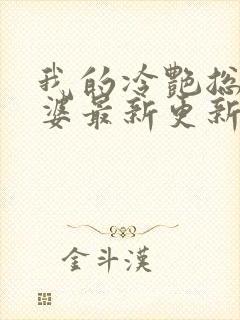 我的冷艷总
婆最新更新
金斗漢